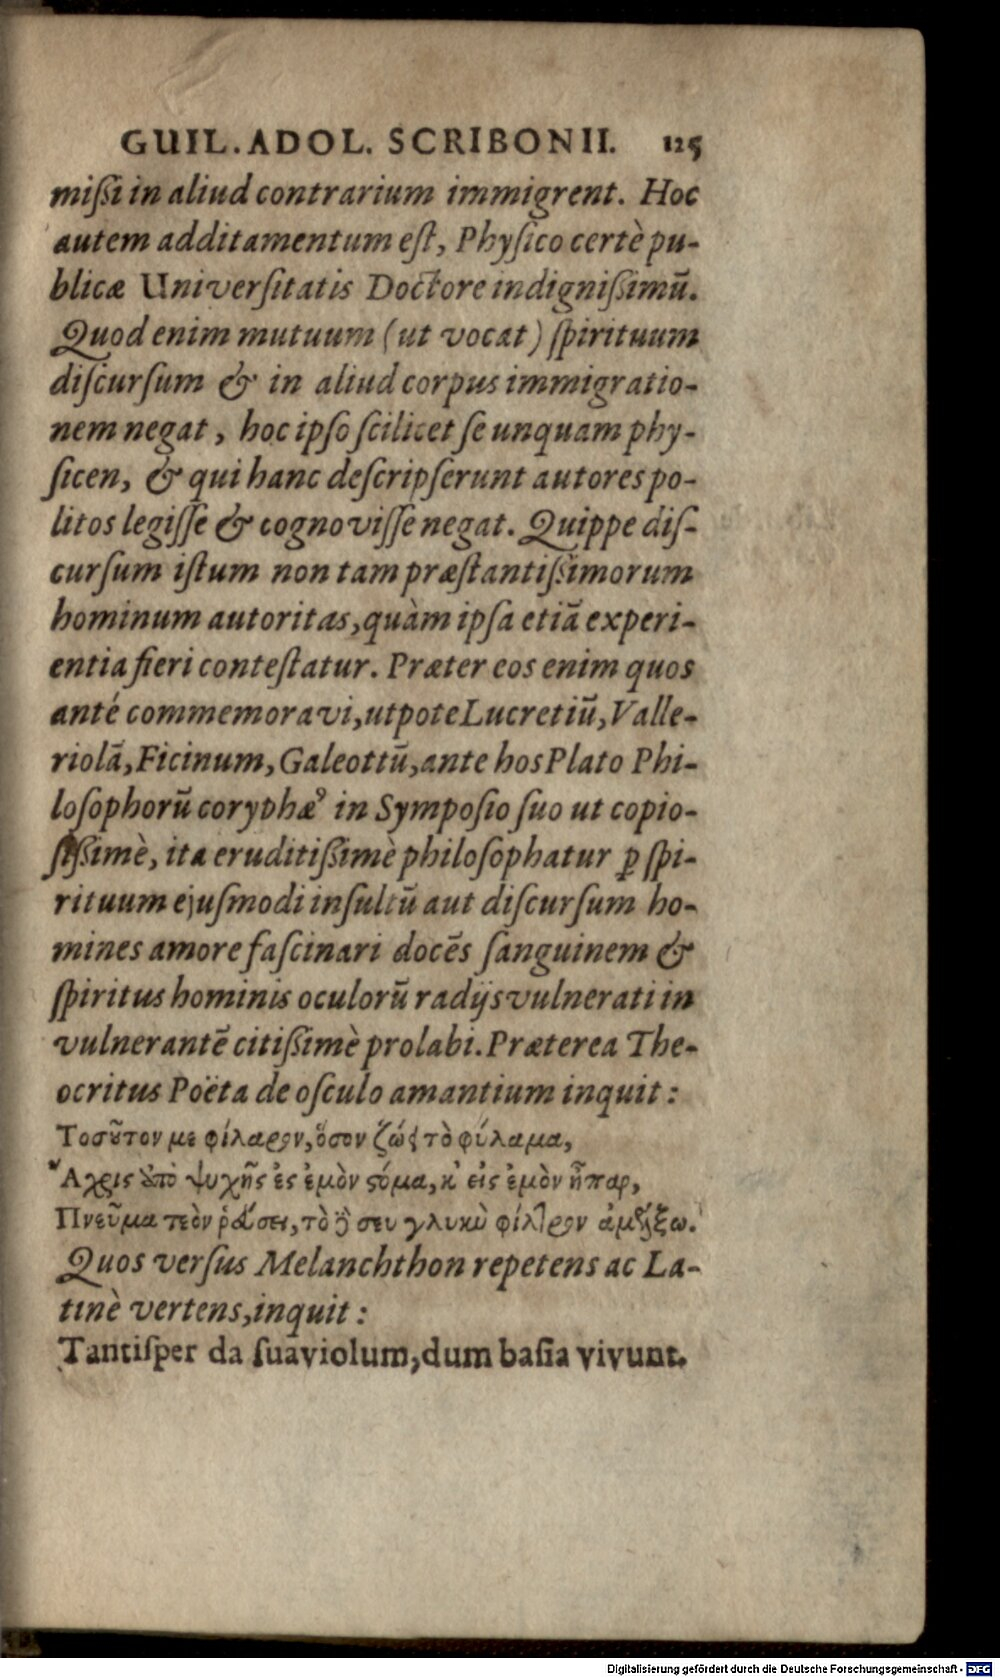 GUIL. ADOL. SCRIBONII. 125
miſſi in aliud contrarium immigrent. Hoc
autem additamentum eſt, Phyſico certè pu-
blicæ Univerſitatis Doctore indigniſſimū.
Quod enim mutuum (ut vocat) ſpirituum
diſcurſum & in aliud corpus immigratio-
nem negat, hoc ipſo ſcilicet ſe unquam phy-
ſicen, & qui hanc deſcripſerunt autores po-
litos legiſſe & cognoviſſe negat. Quippe diſ-
curſum iſtum non tam præſtantiſſimorum
hominum autoritas, quàm ipſa etiā experi-
entia fieri conteſtatur. Præter eos enim quos
anté commemoravi, utpote Lucretiū, Valle-
riolā, Ficinum, Galeottū, ante hos Plato Phi-
loſophorū coryphæꝰ in Sympoſio ſuo ut copio-
ſiſſimè, ita eruditiſſimè philoſophatur ꝑ ſpi-
rituum ejuſmodi inſultū aut diſcurſum ho-
mines amore faſcinari docēs ſanguinem &
ſpiritus hominis oculorū radijs vulnerati in
vulnerantē citiſſimè prolabi. Præterea The-
ocritus Poëta de oſculo amantium inquit:
Τοσοῦτον με φίλαρον, ὅσον ζώ τὸ φύλαμα,
Ἄχρις ὑπὸ ψυχῆς ἐς ἐμὸν στόμα, κ' εἰς ἐμὸν ἧπαρ,
Πνεῦμα τεὸν ῥεύσει, τὸ δέ σευ γλυκὺ φίλτρον ἀμέλξω.
Quos verſus Melanchthon repetens ac La-
tinè vertens, inquit:
Tantiſper da ſuaviolum, dum baſia vivunt.
Digitalisierung gefördert durch die Deutsche Forschungsgemeinschaft - DFG